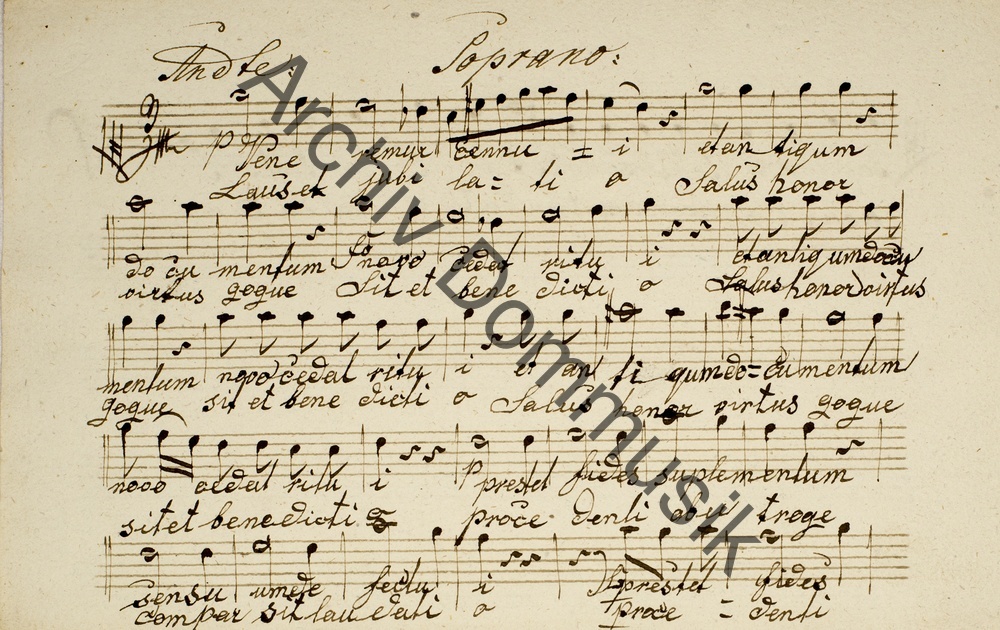 Andte: Soprano:
P Vene remur cernnu = i et an tigum
Laus et jubi la = ti o Salus honor
do cu mentum novo cedat ritu i et antiqum docu
virtus qoque Sit et bene dicti o Salus honor virtus
mentum novo cedat ritu i et an ti qum do = cu mentum
qoque sit et bene dicti o Salus honor virtus qoque
novo cedat ritu i P prestet fides suplementum
sit et bene dicti o proce denti ab u troqe
sensu umde fectu i prestet fides
compar sit lau dati o proce = denti
Archiv Dommusik